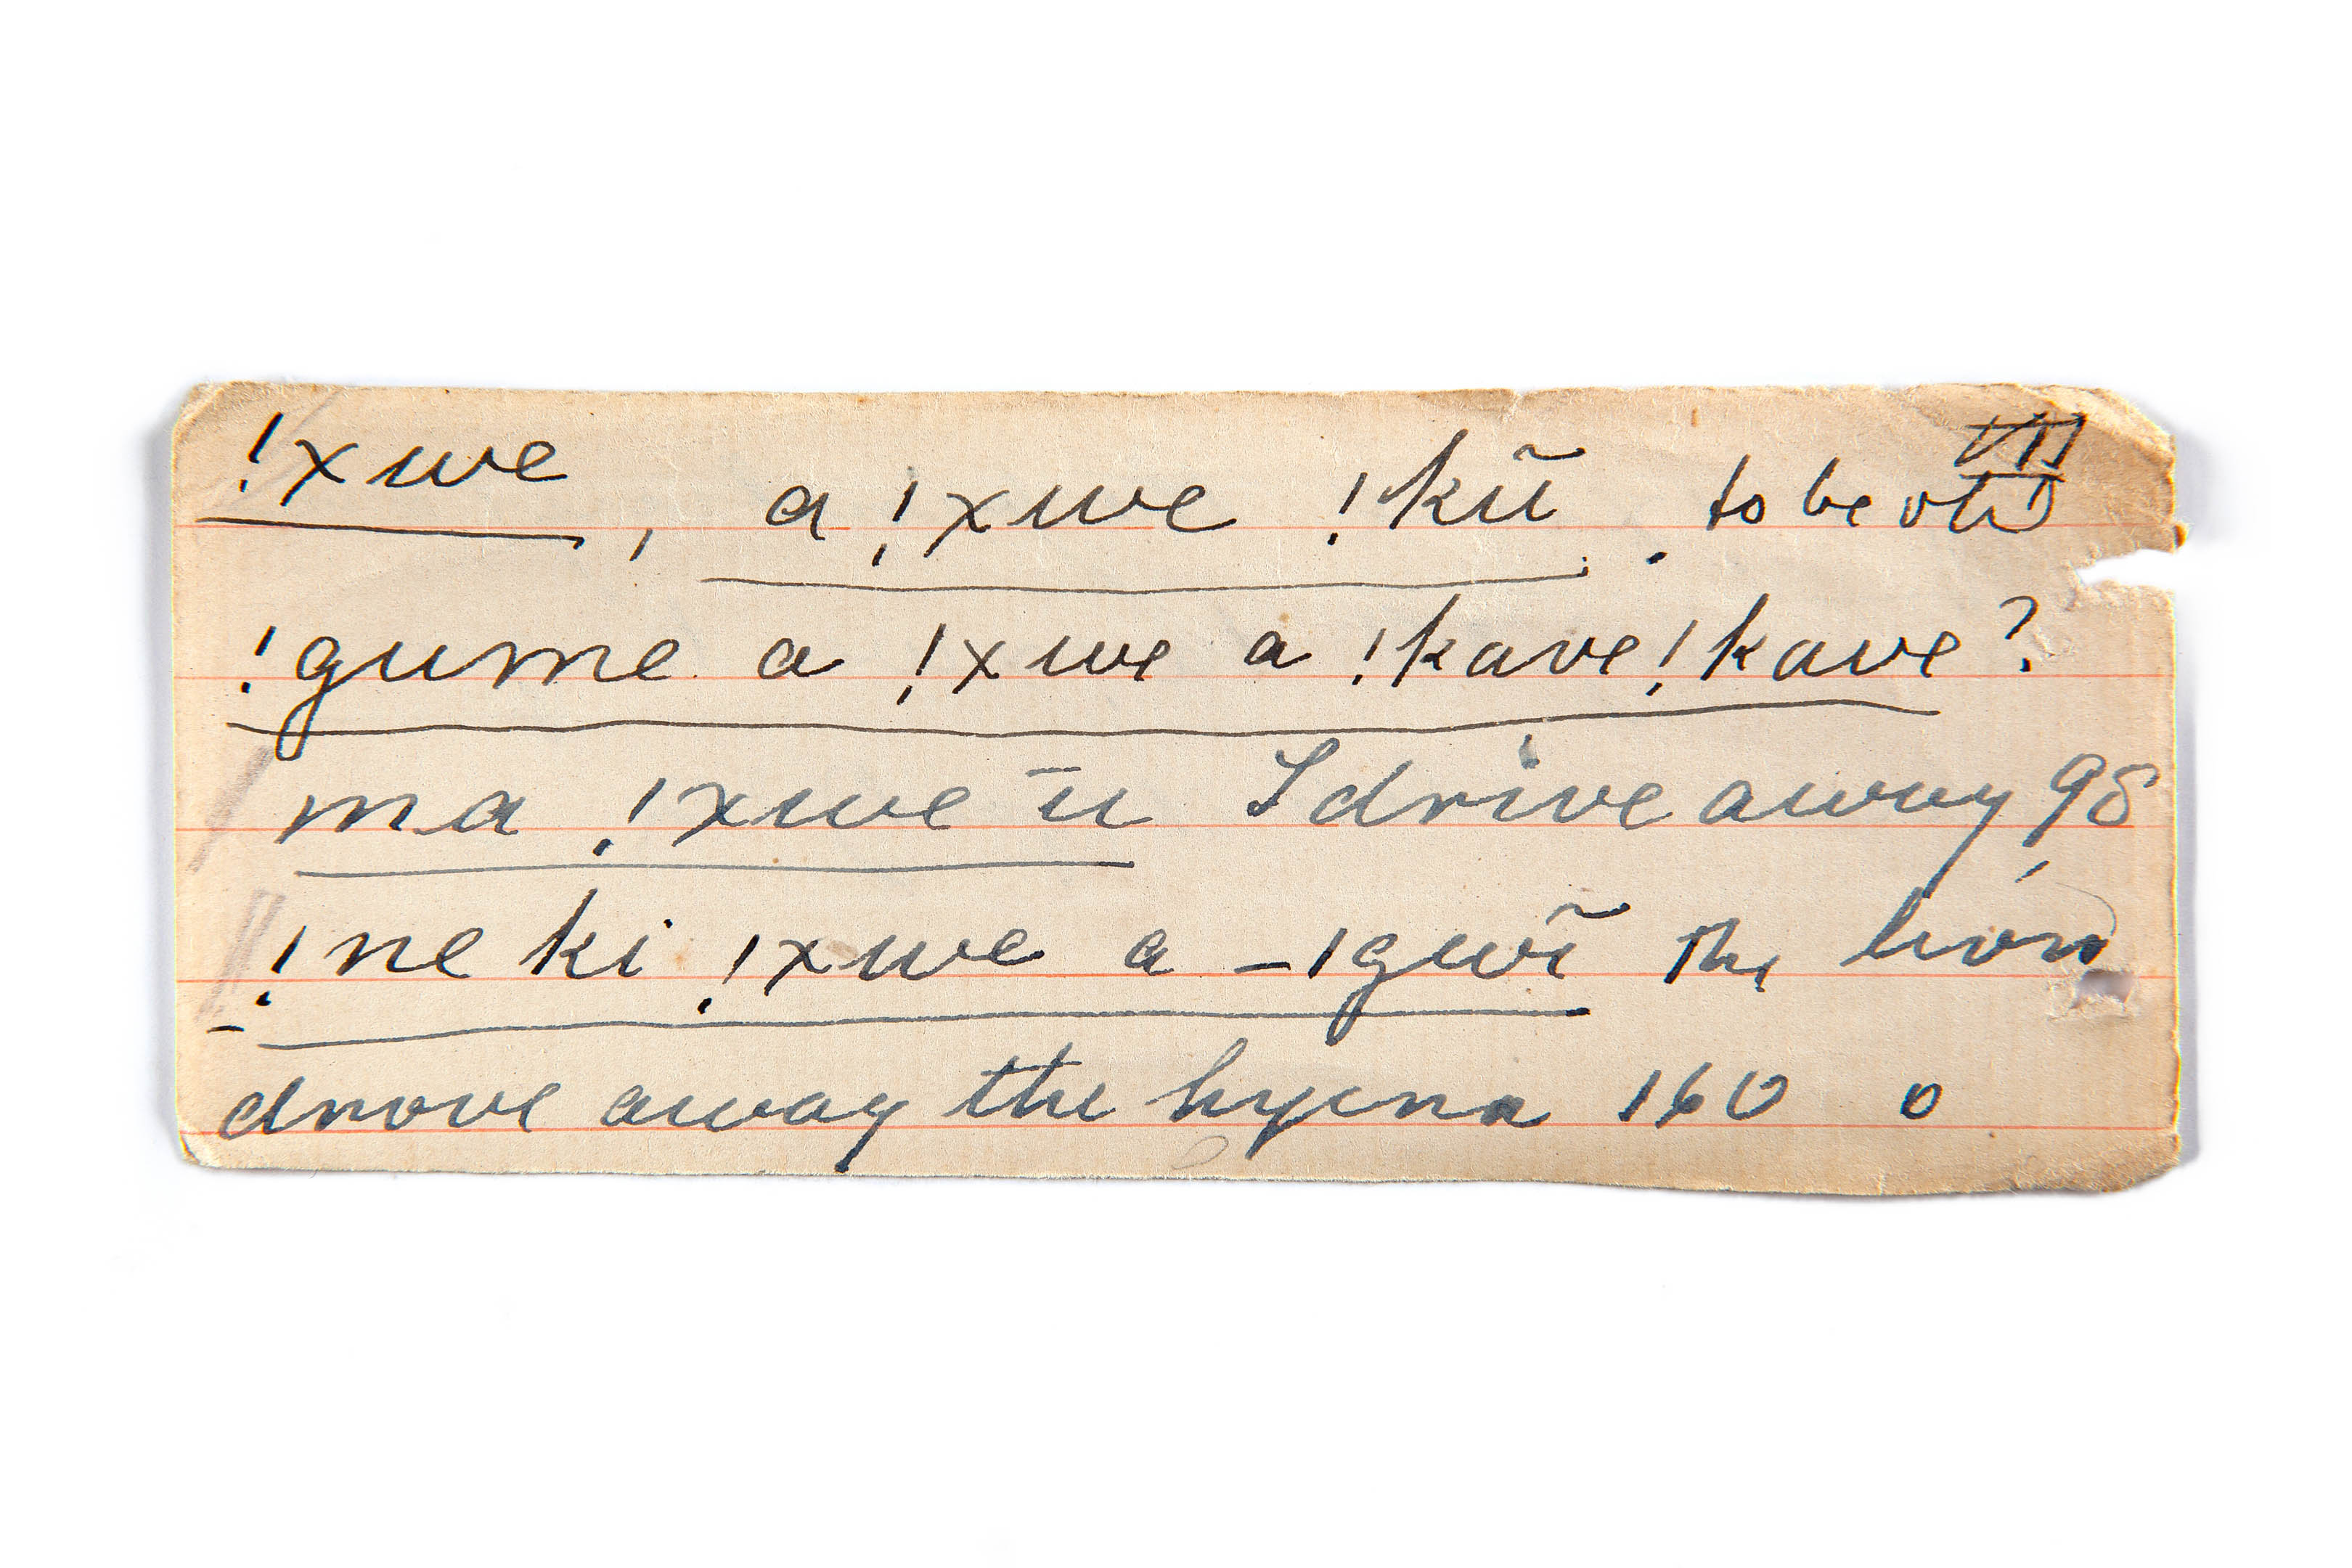 VII
!xwe, a !xwe !kũ. to be old
!gume a !xwe a !kave!kave?
ma !xwe ū I drive away 98
!ne ki !xwe a _ǀgwĩ the lion
drove away the hyena 160 o